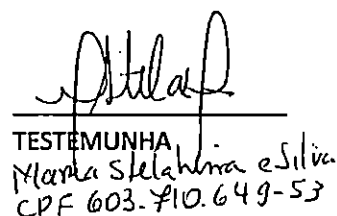 TESTEMUNHA
Maria Stela e Silva
CPF 603.710.649-53